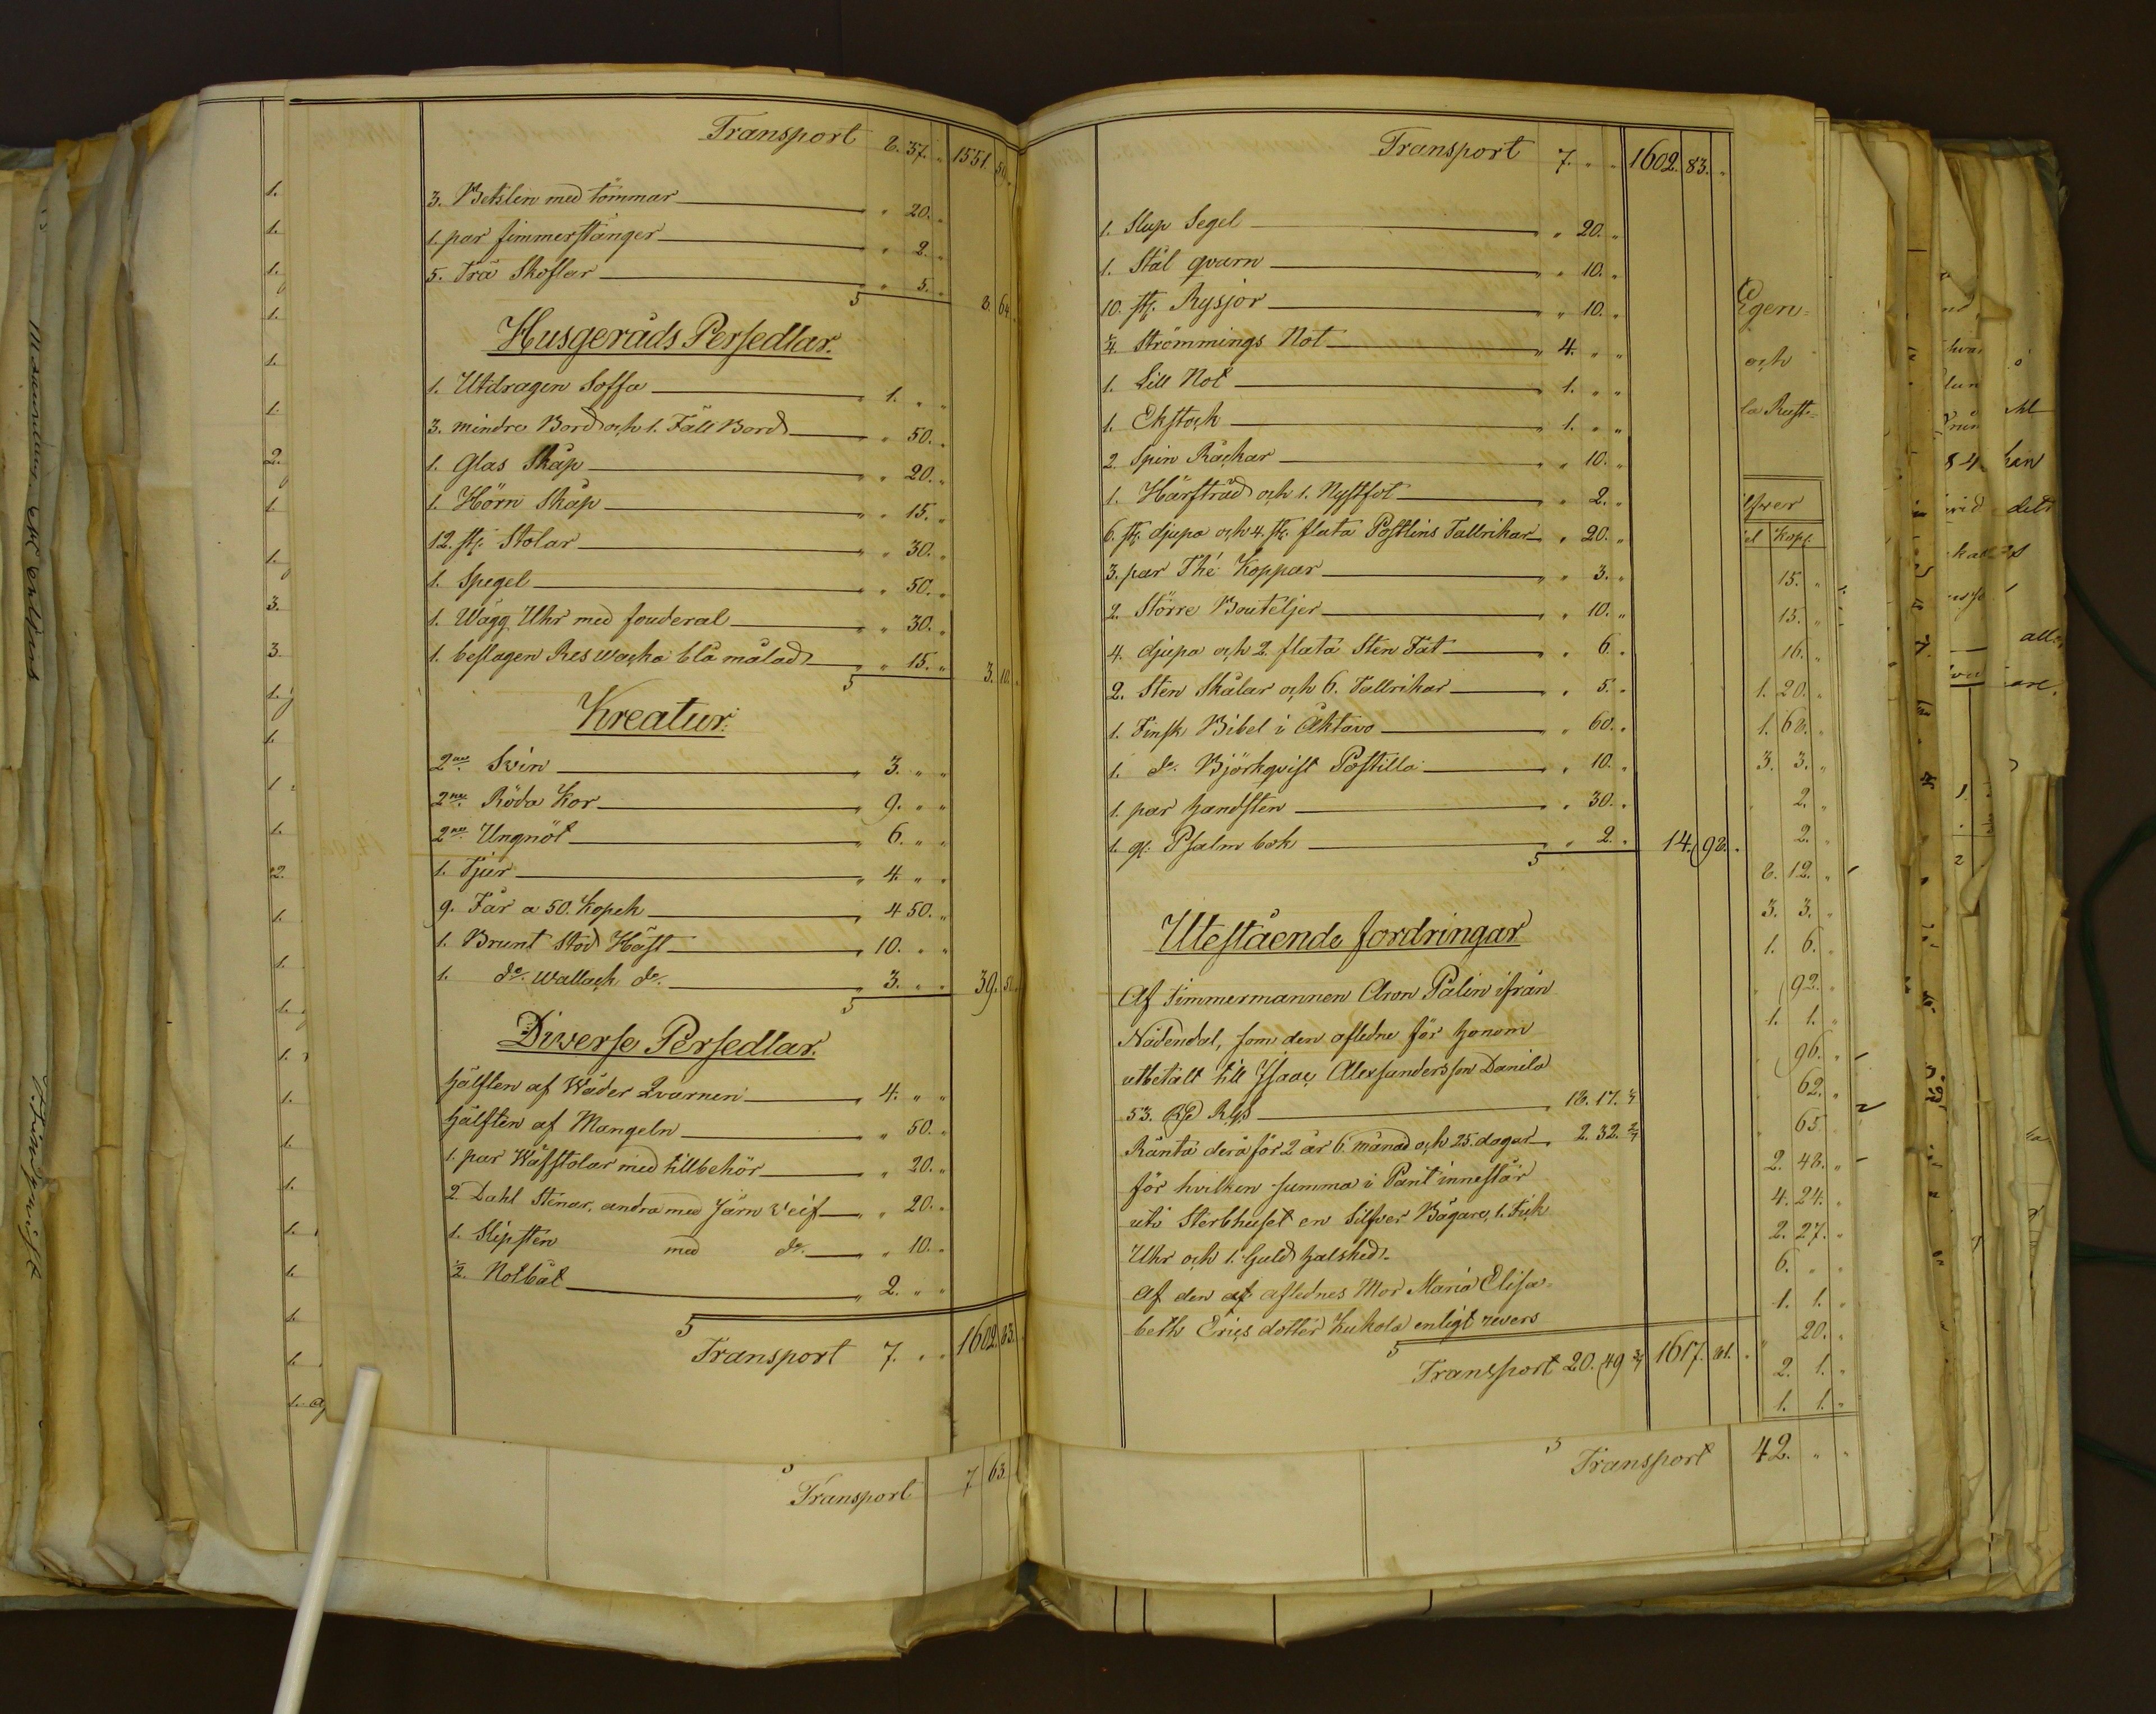 Transport 8. 37. " 1551. 59.
3. Betslen med tömmar " 20. "
1. par fimmerstänger " 2. "
5. Trä Skoflar " 5. " 8. 64.
Husgeråds Persedlar.
1. Utdragen Soffa " 1. " "
3. mindre Bord och 1. Fäll Bord " 50. "
1. Glas Skåp " 20. "
1. Hörn Skåp " 15. "
12. st: Stolar " 30. "
1. Spegel " 50. "
1. Wägg Uhr med fouderal " 30. "
1. beslagen Res wacka blå målad " 15. " 3. 10.
Kreatur.
2ne Svin " 3. " "
2ne Röda Kor " 9. " "
2ne Ungnöt " 6. " "
1. Tjur " 4. " "
9. Får a 50. Kopek " 4 50. "
1. Brunt Stod Häst " 10. " "
1. do. Wallack do. " 3. " " 39. 50.
Diverse Persedlar.
hälften af Wäder Qvarnen " 4. " "
hälften af Mangeln " 50. "
1. par Wäfstolar med tillbehör " 20. "
2. Dahl Stenar, andra med Järn Veif " 20. "
1. Slipsten med do. " 10. "
½. Notbåt " 2. " "
Transport 7. " " 1602. 83.
Transport 7. 63.
Transport 7. " " 1602. 83. "
1. Slup Segel " 20. "
1. Stål qvarn " 10. "
10. st: Rysjor " 10. "
¼. Strömmings Not " 4. " "
1. Sill Not " 1. " "
1. Ekstock " 1. " "
2. Spin Råckar " 10. "
1. Härfträd och 1. Nystfot " 2. "
6. st: djupa och 4. st: flata Postlins Tallrikar " 20. "
3. par Thé Koppar " 3. "
2. Större Bouteljer " 10. "
4. djupa och 2. flata Sten Fat " 6. "
2. Sten Skålar och 6. Tallrikar " 5. "
1. Finsk Bibel i Aktavo " 60. "
1. do. Björkqvist Postilla " 10. "
1. par handsten " 30. "
1. gl: Psalm bok " 2. " 14. 98. "
Utestående fordringar
Af Timmermannen Aron Palin ifrån
Nådendal, som den aflidne för honom
utbetalt till Isaac Alexandersson Danila
53. Rgs " 18. 17. 1/7
Ränta derå för 2 år 6. månad och 25. dagar 2. 32. 2/7
för hvilken summa i Pant innestår
uti Sterbhuset en Silfver Bägare, 1. Fick
Uhr och 1. Guld halsked.
Af den af aflednes Mor Maria Elisa-
beth Erics dotter Kukola enligt revers
Transport 20. 49 3/7 1617. 81. "
Egen-
och
la Rust-
Kop:
15. "
15. "
16. "
1. 20. "
1. 68. "
3. 3. "
2. "
2. "
8. 12. "
3. 3. "
1. 6. "
92. "
1. 1. "
96. "
62. "
65. "
2. 48. "
4. 24. "
2. 27. "
6. " "
1. 1. "
20. "
2. 1. "
1. 1. "
Transport 42. " "